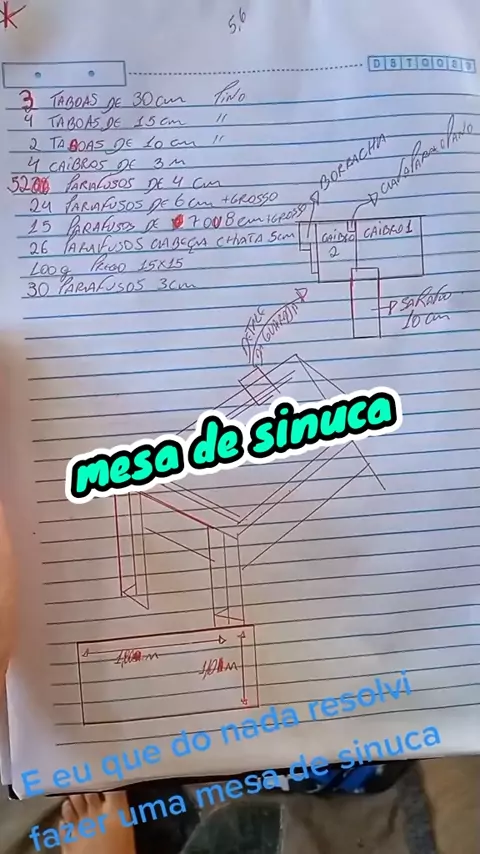 5,6
D S T Q Q S S
3 TABOAS DE 30 cm PINO
4 TABOAS DE 15 cm "
2 TABOAS DE 10 cm "
4 CAIBROS DE 3 M
PARAFUSOS DE 4 cm
24 PARAFUSOS DE 6 cm + GROSSO
15 PARAFUSOS DE 7 OU 8 cm + GROSSO
26 PARAFUSOS CABEÇA CHATA 5cm
100g PREGO 15X15
30 PARAFUSOS 3cm
BORRACHA
PANO
CAIBRO 2
CAIBRO 1
SARRAFO 10 cm
DETALE DA GUARDA
mesa de sinuca
E eu que do nada resolvi
fazer uma mesa de sinuca